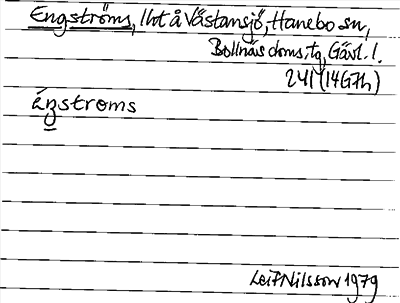 Engströms, lht å Västansjö, Hanebo sn,
Bollnäs doms. tg, Gävl. l.
241 (14G7h)
ángstroms
Leif Nilsson 1979